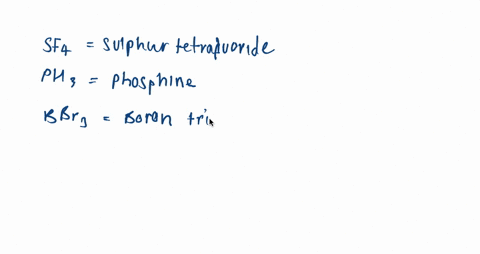 SF4 = Sulphur tetrafuoride
PH3 = Phosphine
BBr3 = Boron tri